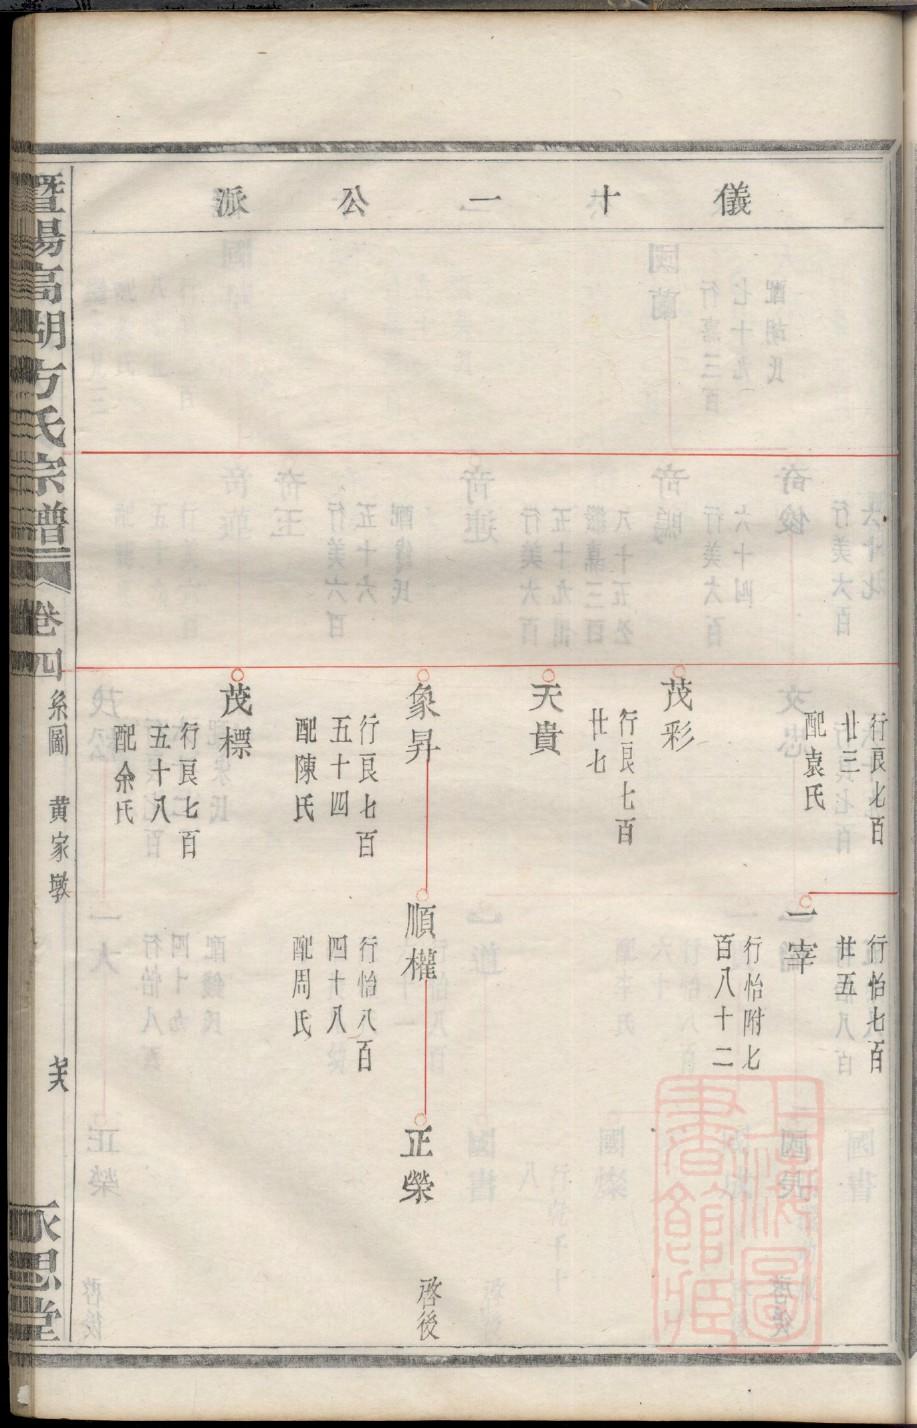 儀十一公派
行艮七百
廿三
配袁氏
茂彩
行艮七百
廿七
天貴
象昇
行艮七百
五十四
配陳氏
茂標
行艮七百
五十八
配余氏
行怡七百
廿五
一宰
行怡附七
百八十二
順權
行怡八百
四十八
配周氏
正榮
啓後
暨陽高湖方氏宗譜
卷四
系圖
黄家墩
永思堂